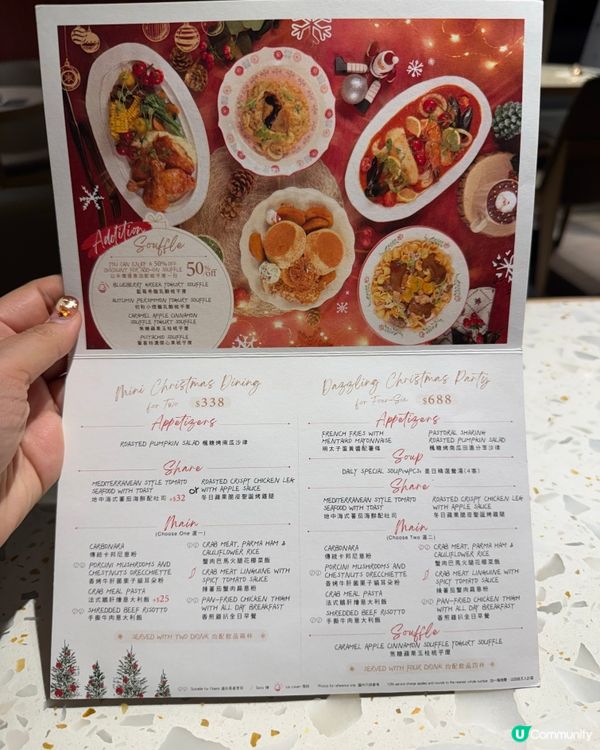 Addition
Souffle
YOU CAN ENJOY A 50% OFF
DISCOUNT FOR ADD-ON SOUFFLE
50% off
BLUEBERRY GREEK YOGURT SOUFFLE
藍莓希臘乳酪梳乎厘
AUTUMN PERSIMMON YOGURT SOUFFLE
CARAMEL APPLE CINNAMON
SOUFFLE YOGURT SOUFFLE
焦糖蘋果玉桂梳乎厘
PISTACHIO SOUFFLE
Mini Christmas Dining
for Two $338
Appetizers
ROASTED PUMPKIN SALAD 楓糖烤南瓜沙律
Share
MEDITERRANEAN STYLE TOMATO
SEAFOOD WITH TOAST
地中海式蕃茄海鮮配吐司 +$32
or
ROASTED CRISPY CHICKEN LEG
WITH APPLE SAUCE
冬日蘋果脆皮聖誕烤雞髀
Main
(Choose One 選一)
CARBONARA
傳統卡邦尼意粉
PORCINI MUSHROOMS AND
CHESTNUTS ORECCHIETTE
香烤牛肝菌栗子貓耳朵粉
CRAB MEAL PASTA
+$25
SHREDDED BEEF RISOTTO
手撕牛肉意大利飯
CRAB MEAT, PARMA HAM &
CAULIFLOWER RICE
蟹肉巴馬火腿花椰菜飯
CRAB MEAT LINGUINE WITH
SPICY TOMATO SAUCE
辣蕃茄蟹肉扁意粉
PAN-FRIED CHICKEN THIGH
WITH ALL DAY BREAKFAST
香煎雞扒全日早餐
SERVED WITH TWO DRINK 均配飲品兩杯
Dazzling Christmas Party
for Four-Six $688
Appetizers
FRENCH FRIES WITH
MENTAIKO MAYONNAISE
明太子蛋黃醬配薯條
PASTORAL SHARING
ROASTED PUMPKIN SALAD
楓糖烤南瓜田園分享沙律
Soup
DAILY SPECIAL SOUP(4PCS) 是日精選餐湯(4客)
Share
MEDITERRANEAN STYLE TOMATO
SEAFOOD WITH TOAST
地中海式蕃茄海鮮配吐司
ROASTED CRISPY CHICKEN LEG
WITH APPLE SAUCE
冬日蘋果脆皮聖誕烤雞髀
Main
(Choose Two 選二)
CARBONARA
傳統卡邦尼意粉
PORCINI MUSHROOMS AND
CHESTNUTS ORECCHIETTE
香烤牛肝菌栗子貓耳朵粉
CRAB MEAL PASTA
SHREDDED BEEF RISOTTO
手撕牛肉意大利飯
CRAB MEAT, PARMA HAM &
CAULIFLOWER RICE
蟹肉巴馬火腿花椰菜飯
CRAB MEAT LINGUINE WITH
SPICY TOMATO SAUCE
辣蕃茄蟹肉扁意粉
PAN-FRIED CHICKEN THIGH
WITH ALL DAY BREAKFAST
香煎雞扒全日早餐
Souffle
CARAMEL APPLE CINNAMON SOUFFLE YOGURT SOUFFLE
焦糖蘋果玉桂梳乎厘
SERVED WITH FOUR DRINK 均配飲品四杯
U Community